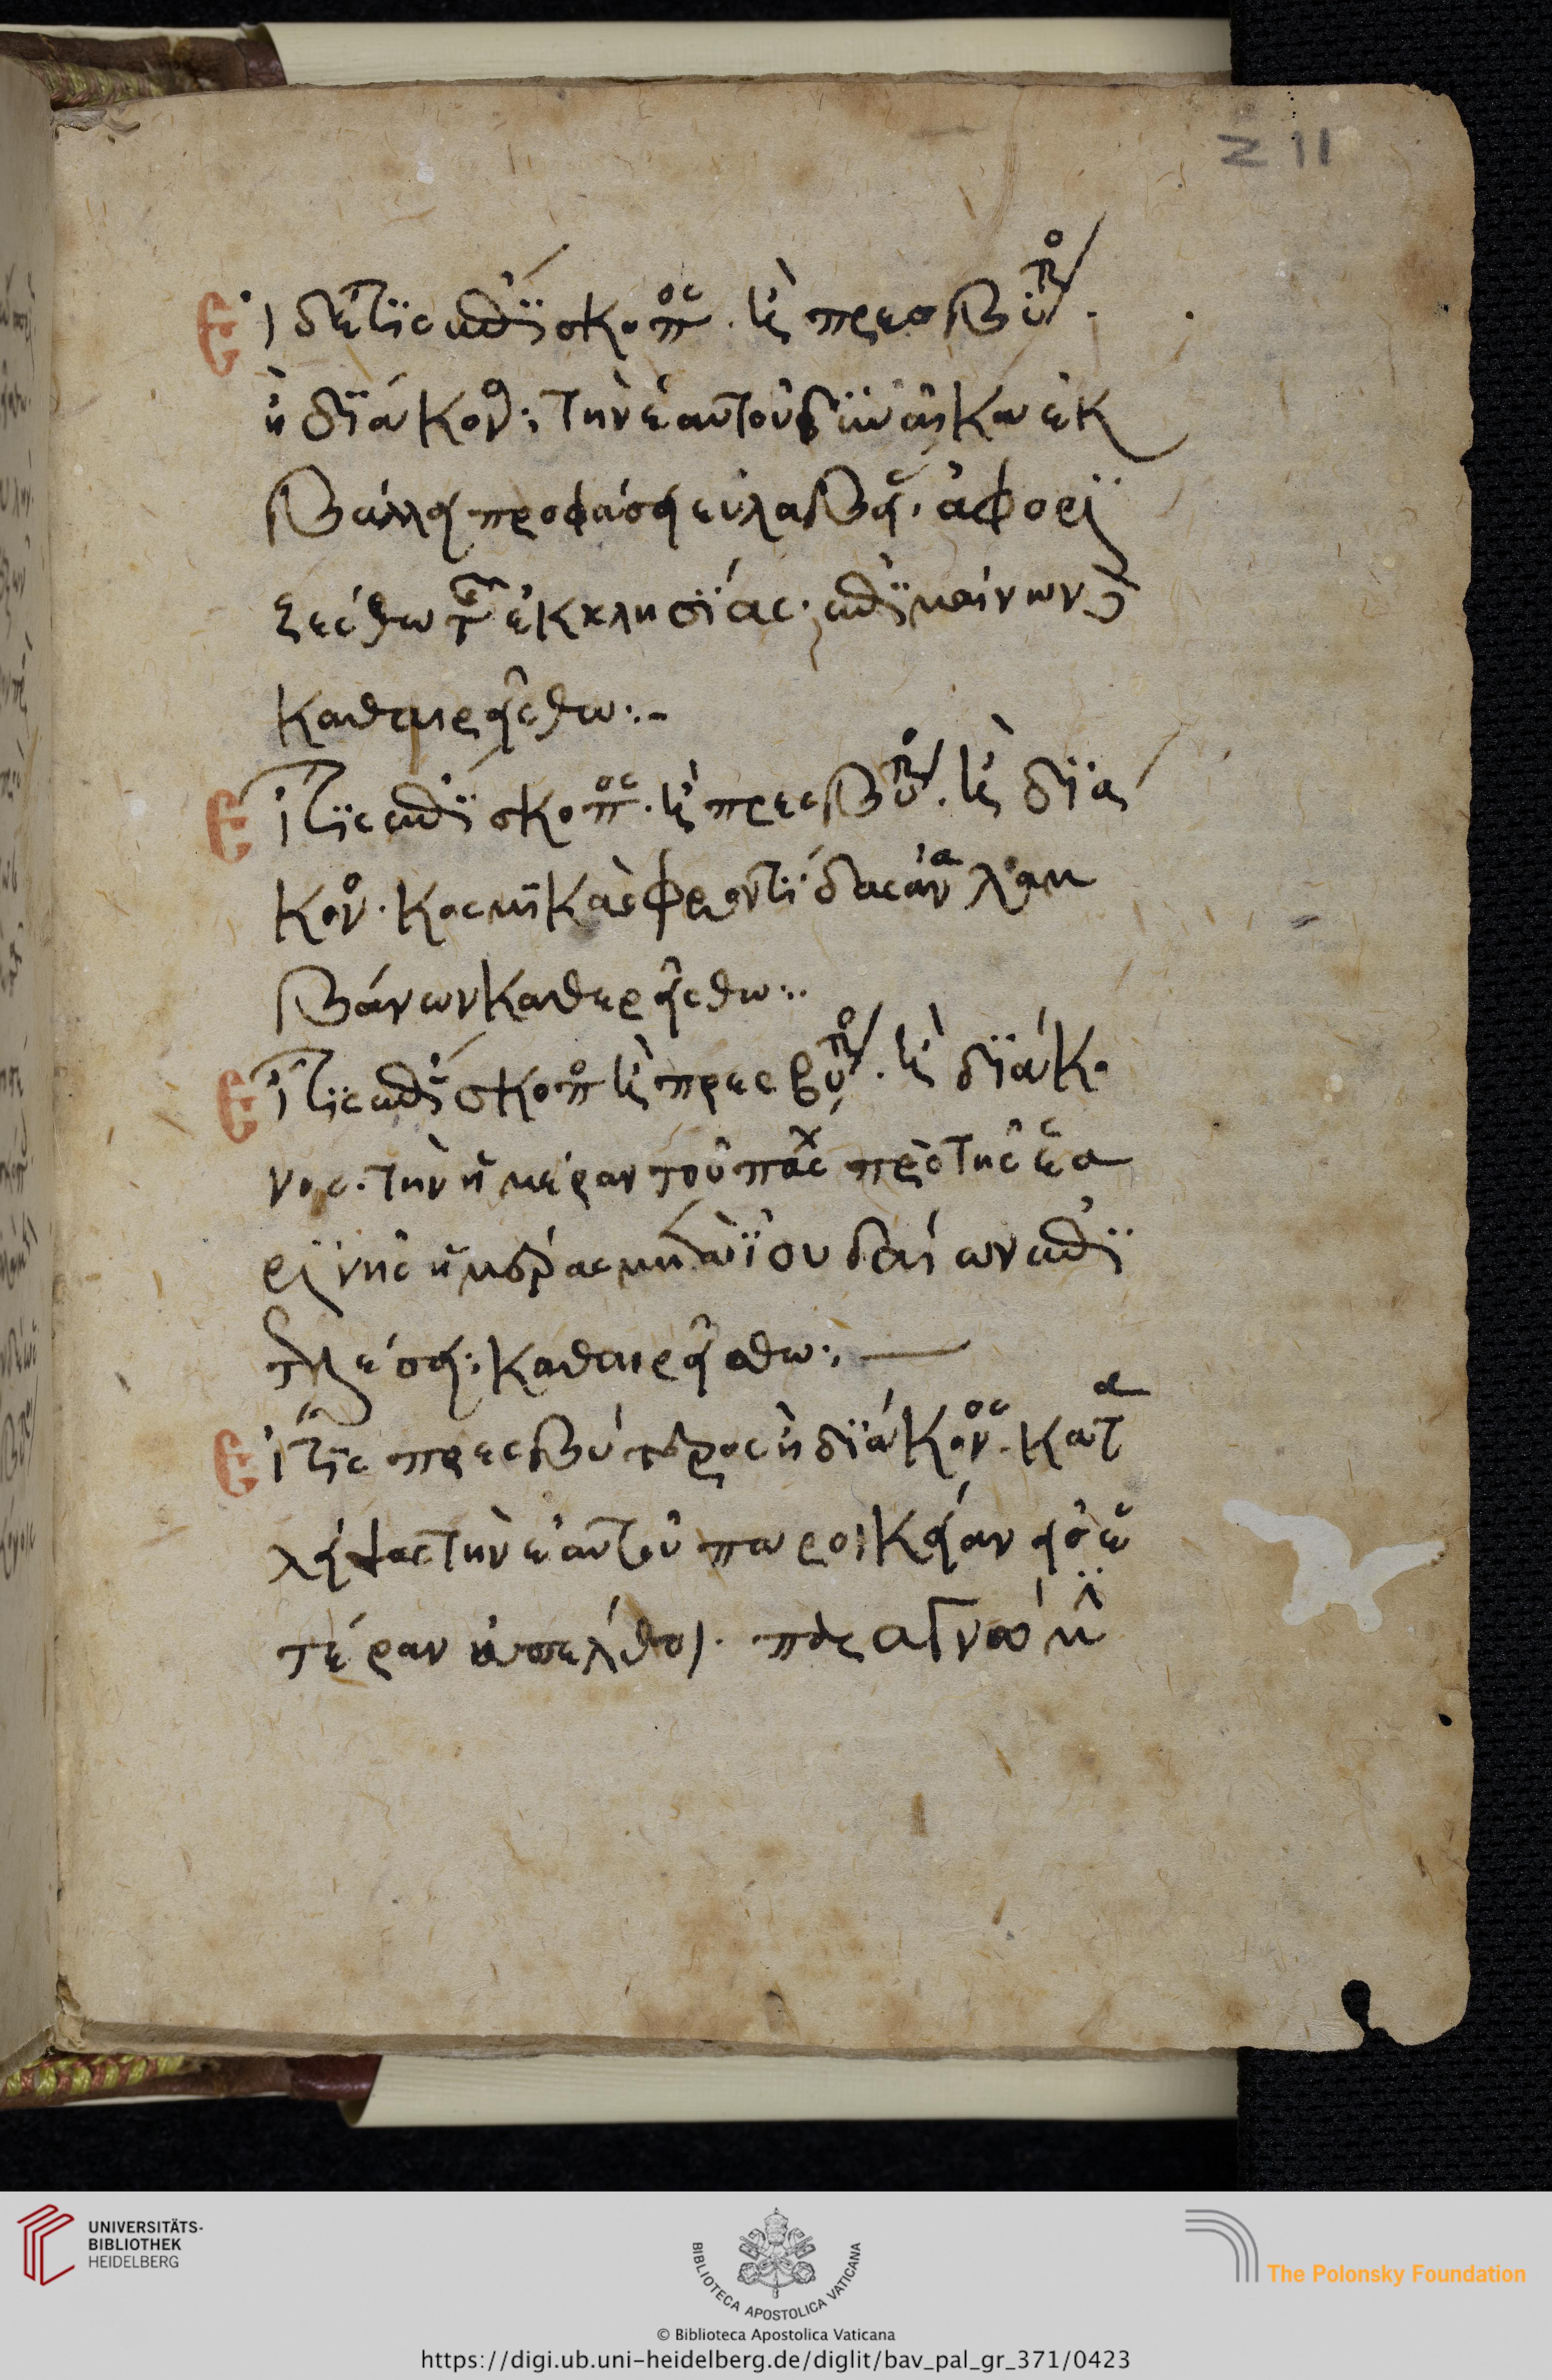 211
Εἰ δέ τϊς ἐπΐσκοπος. κὲ πρεσβΰτρο.
ἢ δϊάκον: τὴν ἑαυτοῦ γϋναίκα ἐκ
βάλλει προφάσει εὐλαβεί(ας). ἀφορϊ
ζέσθω τῆς ἐκκλησϊας. ἐπϊμαίνων
καθαιρείσθω:-
Εἴ τϊς ἐπΐσκοπος. κὲ πρεσβύτρο. κὲ δϊά
κον. κοσμϊκὰς φροντΐδας ἀναλαμ
βάνων καθερείσθω:.
Εἴ τϊς ἐπΐσκοπο κὲ πρεσβύτρο. κὲ δϊάκο
νος. τὴν ἡμέραν τοῦ πάσχ πρὸ τῆς ἐα
ρϊνῆς ἡμέρας μετὰ ϊουδαίων ἐπϊ
τελέσει: καθαιρείσθω:,
Εἴ τϊς πρεσβύτερος ἢ δϊάκονος. κατα
λείψας τὴν ἑαυτοῦ παροικείαν εἰς ἑ
τέραν ἀπελθοι.
UNIVERSITÄTS-
BIBLIOTHEK
HEIDELBERG
BIBLIOTECA APOSTOLICA VATICANA
The Polonsky Foundation
© Biblioteca Apostolica Vaticana
https://digi.ub.uni-heidelberg.de/diglit/bav_pal_gr_371/0423